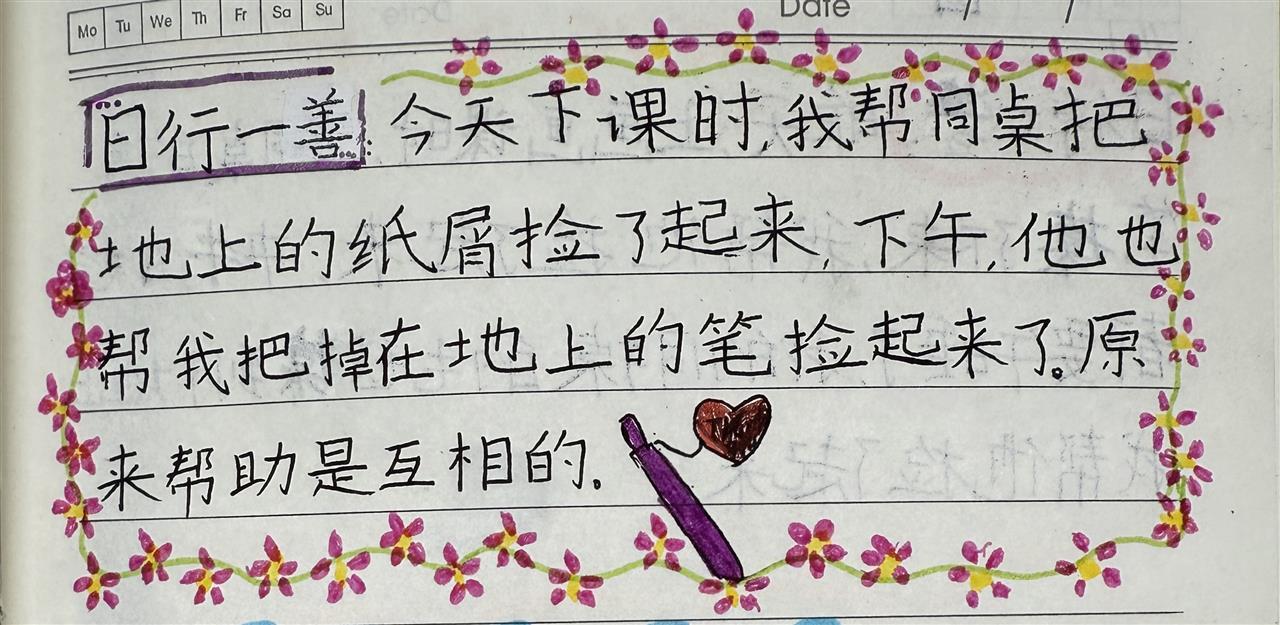 Mo Tu We Th Fr Sa Su Date / /
日行一善 今天下课时,我帮同桌把
地上的纸屑捡了起来,下午,他也
帮我把掉在地上的笔捡起来了。原
来帮助是互相的.